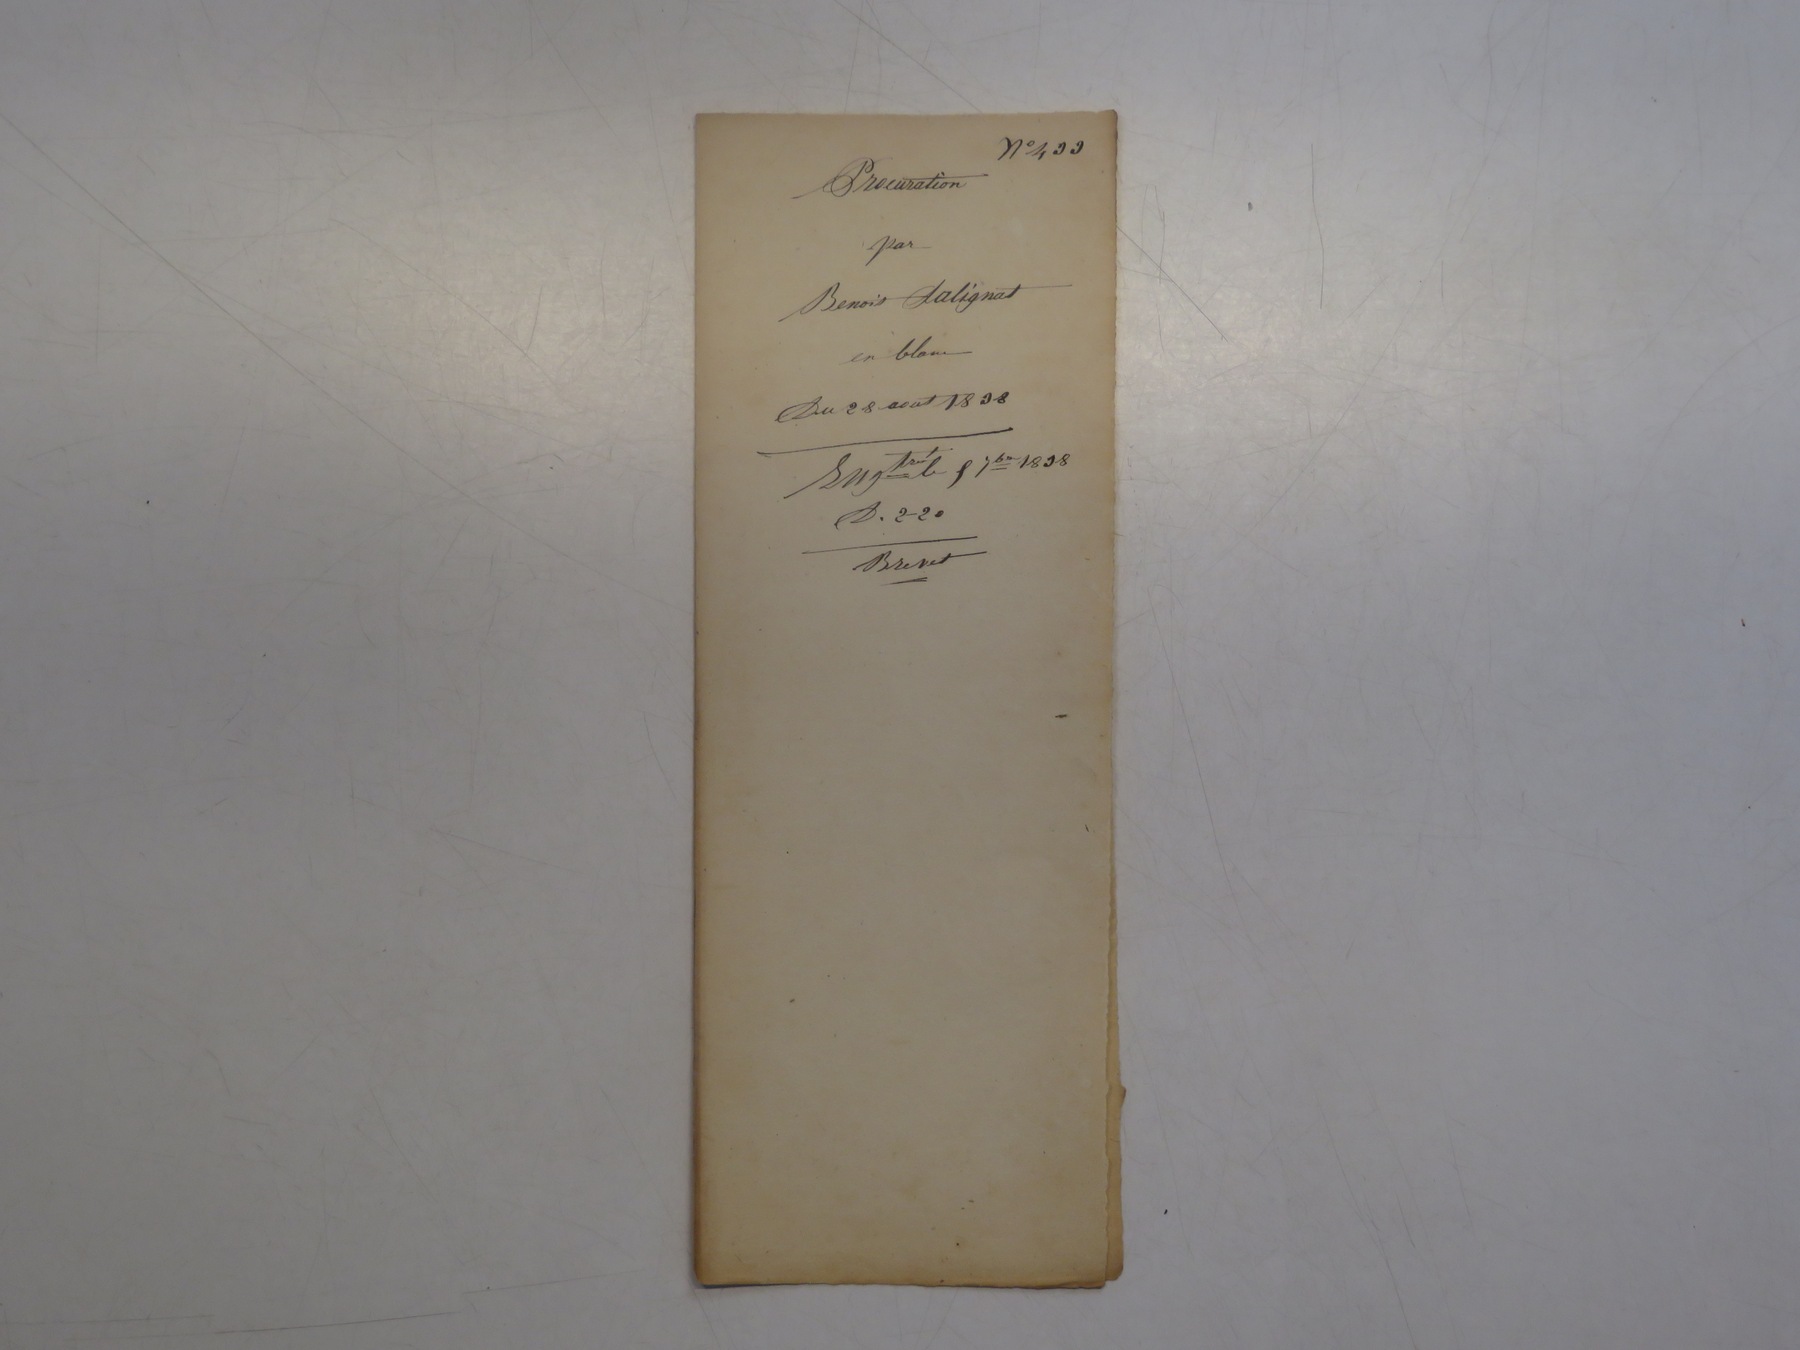 N° 433
Procuration
par
Benoit Salignat
en blanc
Du 28 aout 1838
Eng.tré le 5 7bre 1838
D. 2-20
Brevet